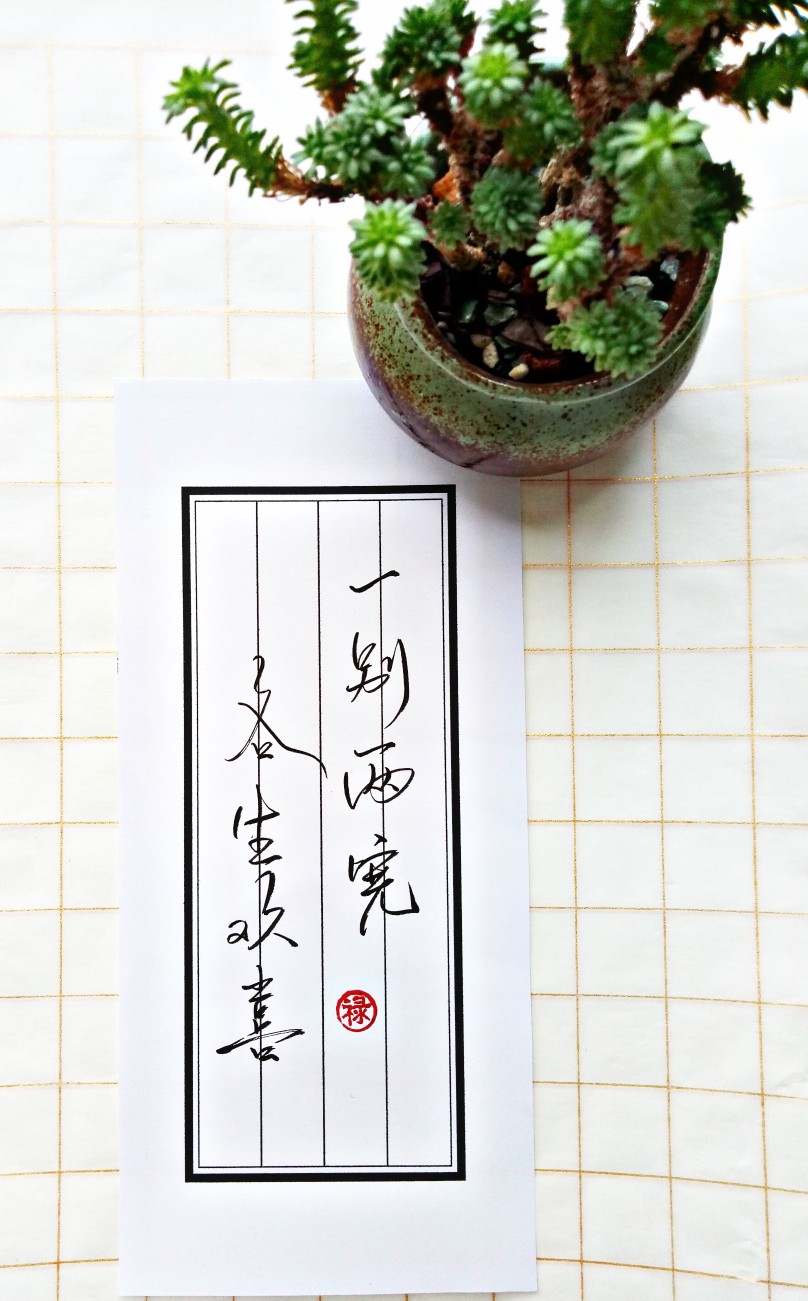 一别两宽
各生欢喜
禄